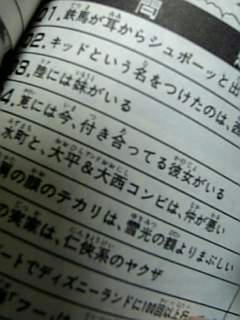 問
01. 鉄馬が耳からシュポーッと出
02. キッドという名をつけたのは、
3. 陸には妹がいる
4. 恵には今、付き合ってる彼女がいる
水町と、大平&大西コンビは、仲が悪い
の顔のテカリは、雪光の額よりまぶしい
の実家は、仁侠系のヤクザ
ートでディズニーランドに100回以上行